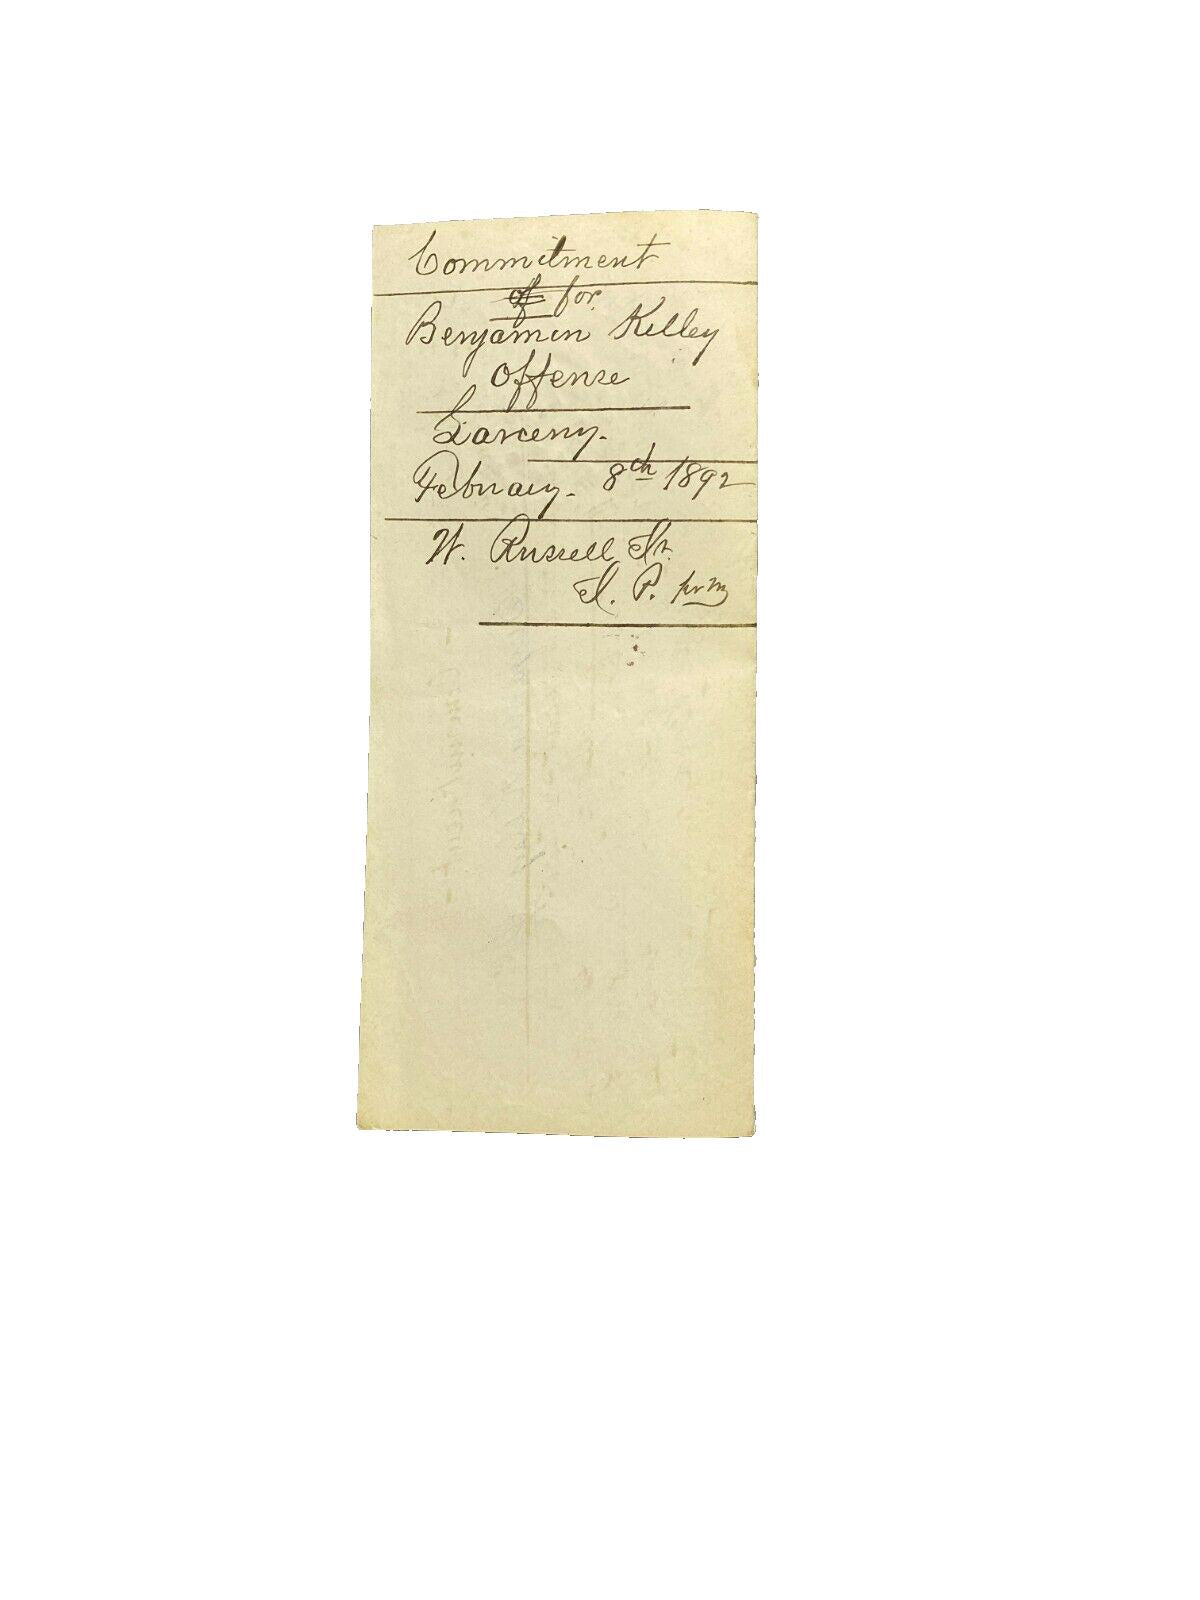 Commitment
of for.
Benjamin Kelley
Offense
Larceny.
February. 8th 1892
W. Russell Jr.
J. P.